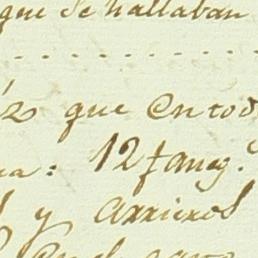 que se hallaban
que en tod
12 faneg.
y arrieros